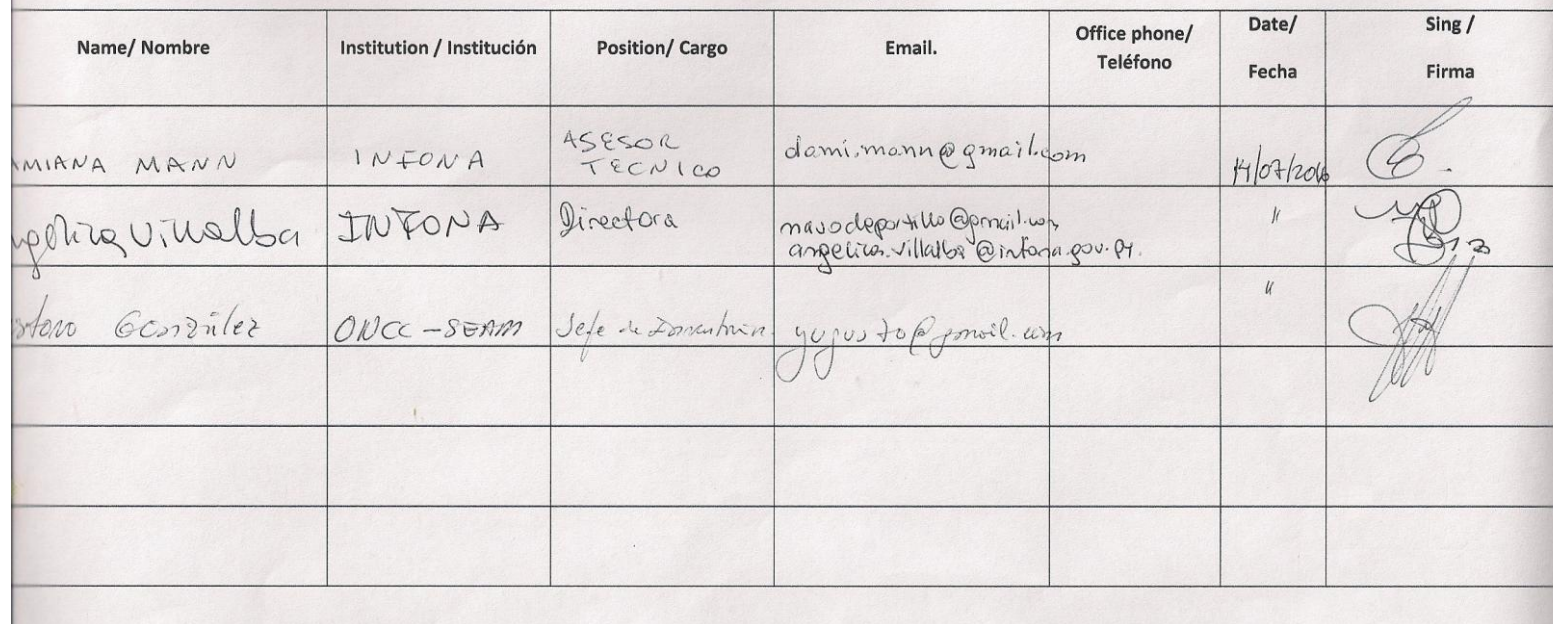 Name/ Nombre Institution / Institución Position/ Cargo Email. Office phone/ Teléfono Date/ Fecha Sing / Firma
MIANA MANN INFONA ASESOR TECNICO dami.mann@gmail.com 14/07/2016
Villalba INFONA Directora angelica.villalba@infona.gov.py.
"
González ONCC-SEAM Jefe de yugusto@gmail.com "